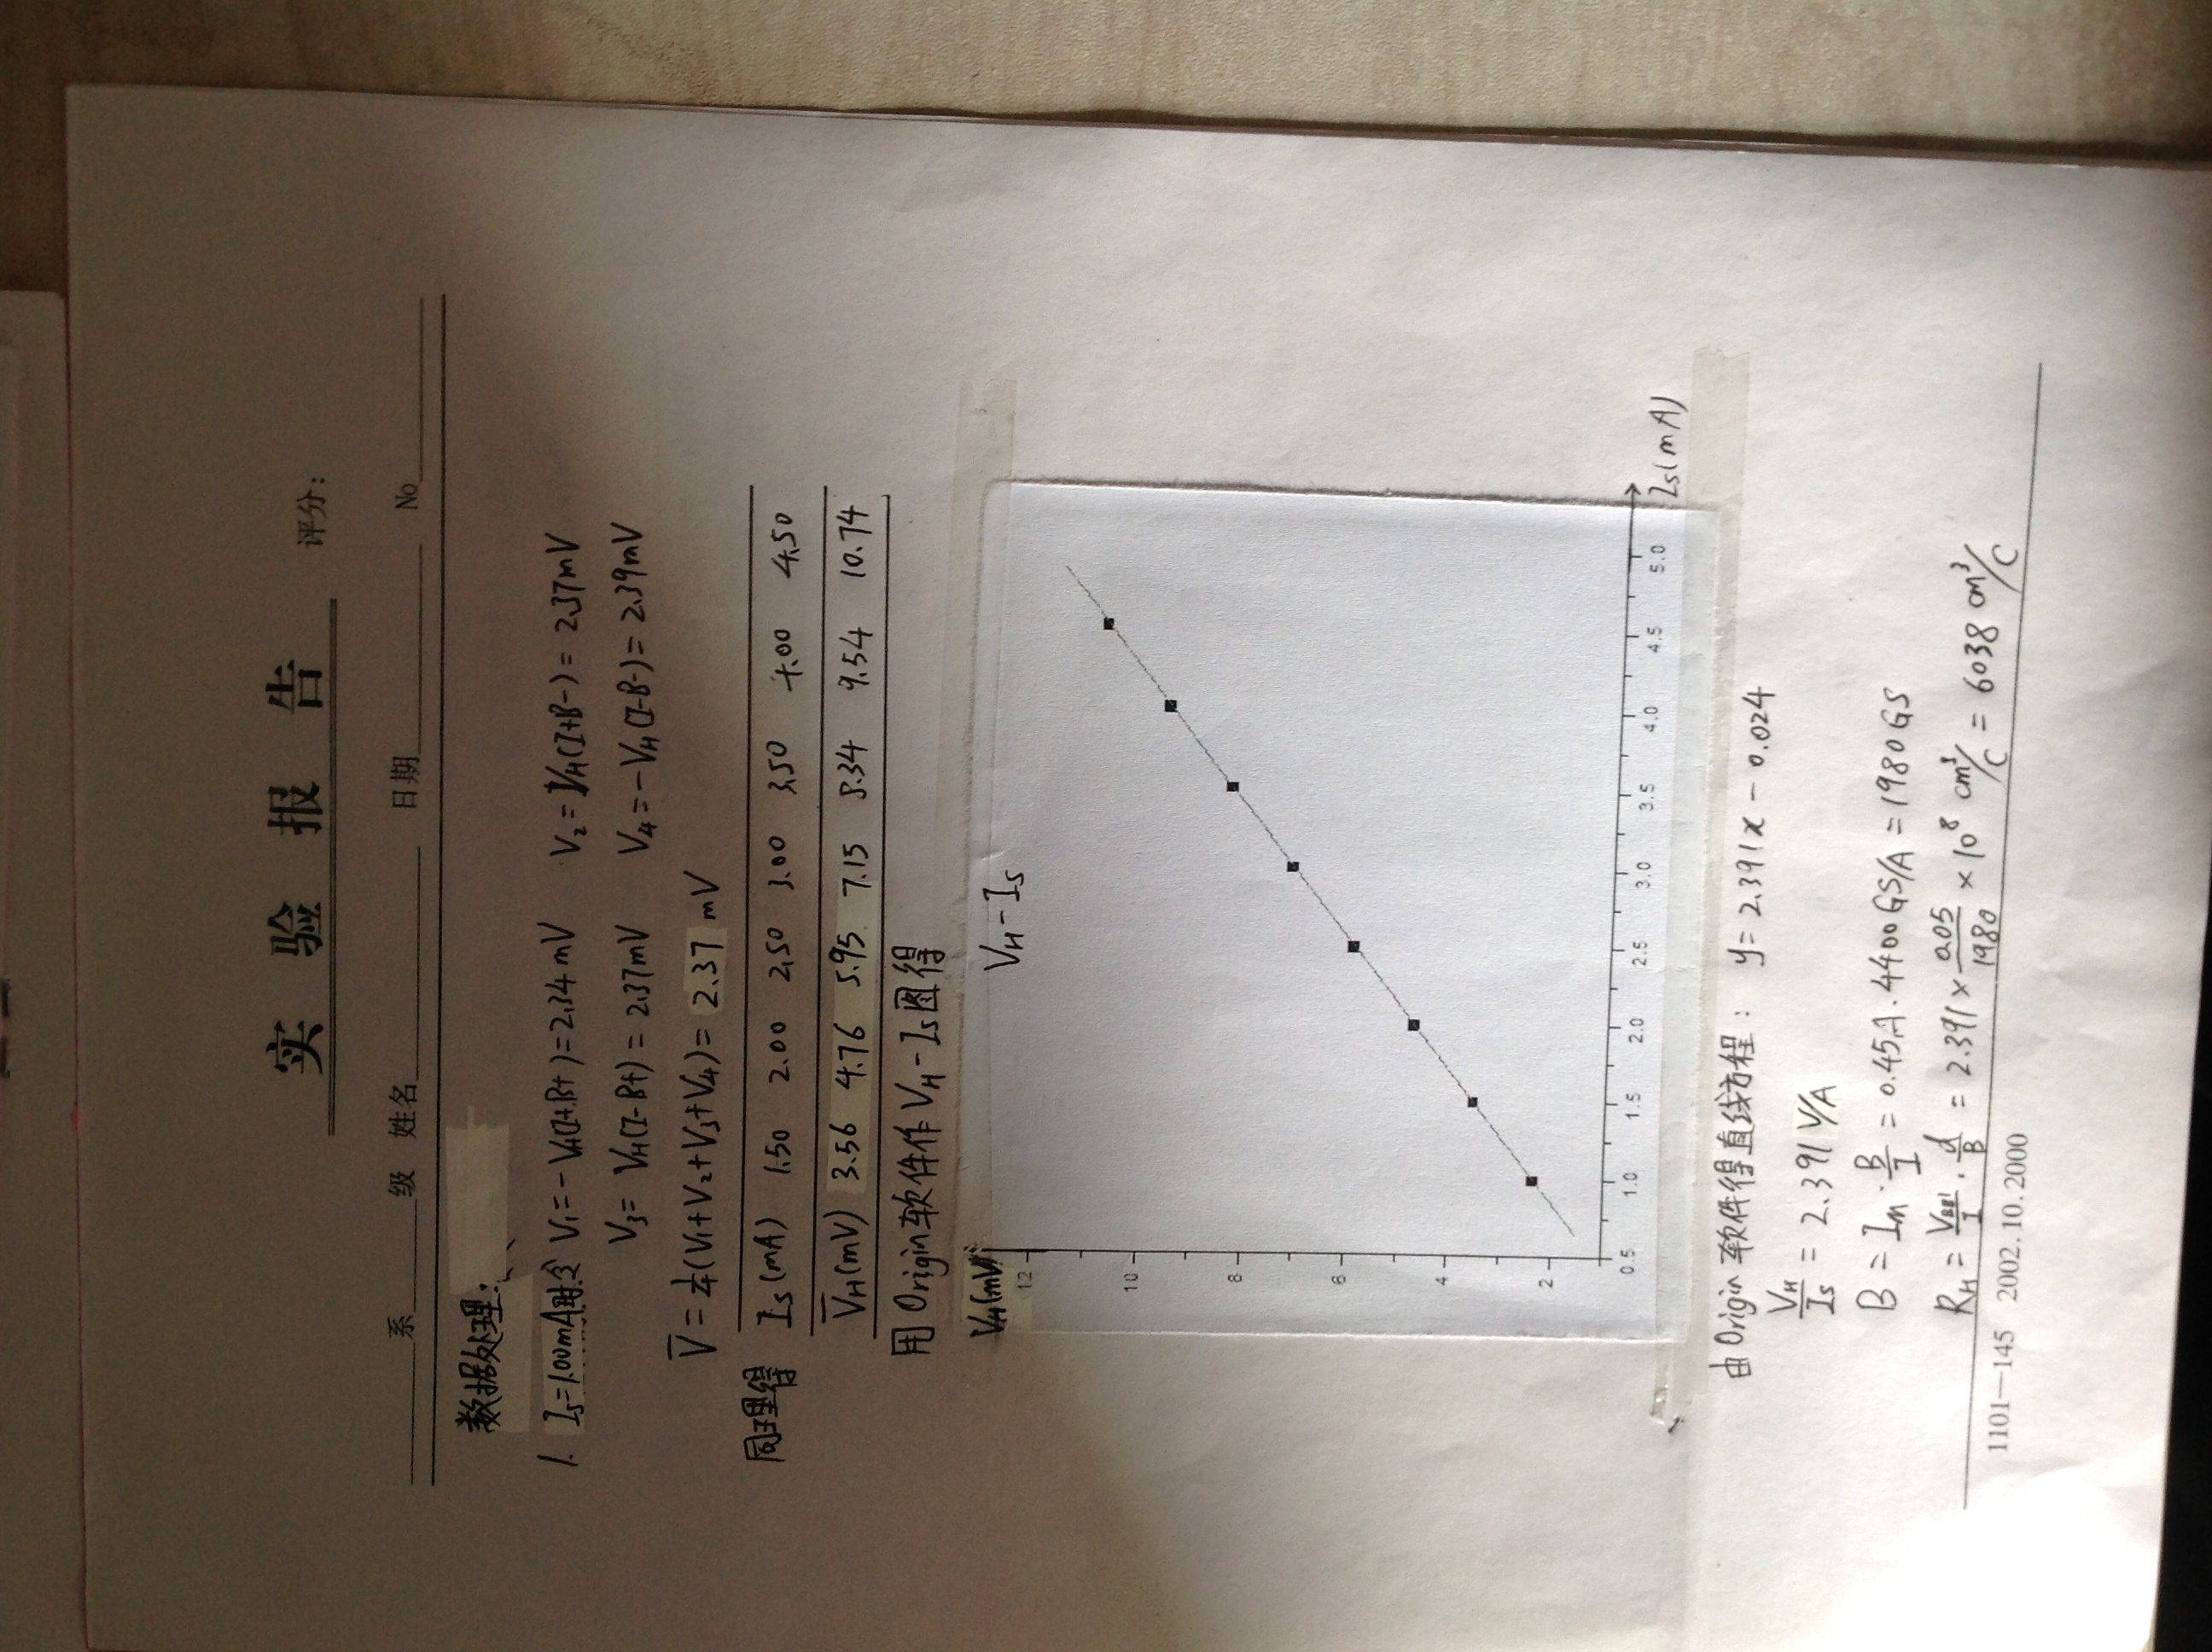 实 验 报 告 评分:
系 级 姓名 日期 No
数据处理:
1. Is=1.00mA时,令 V₁=-VH(I+B+)=2.34mV V₂=VH(I+B-)=2.37mV
V₃=VH(I-B+)=2.37mV V₄=-VH(I-B-)=2.39mV
V̄=¼(V₁+V₂+V₃+V₄)=2.37 mV
同理得 Is(mA) 1.50 2.00 2.50 3.00 3.50 4.00 4.50
V̄H(mV) 3.56 4.76 5.95 7.15 8.34 9.54 10.74
用Origin软件作VH-Is图得
VH(mV) VH-Is
12
10
8
6
4
2
0.5 1.0 1.5 2.0 2.5 3.0 3.5 4.0 4.5 5.0
Is(mA)
由Origin软件得直线方程: y=2.391x-0.024
VH/Is = 2.391 V/A
B=Im·B/I=0.45A·4400GS/A=1980GS
RH=VBB'/I·d/B=2.391×0.05/1980×10⁸ cm³/C=6038 cm³/C
1101—145 2002.10.2000